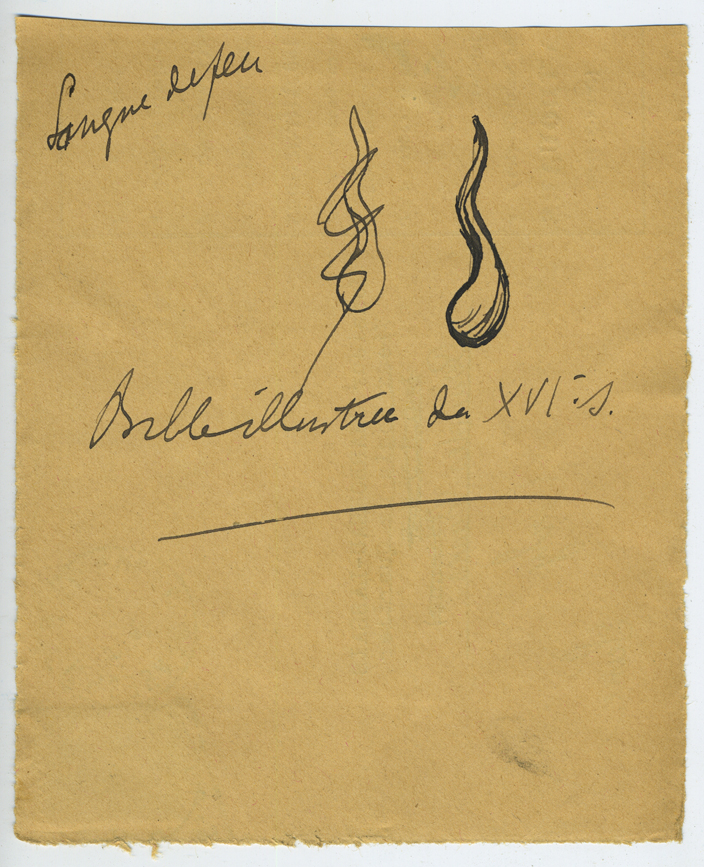 Langue de feu
Bible illustrée du XVIe s.